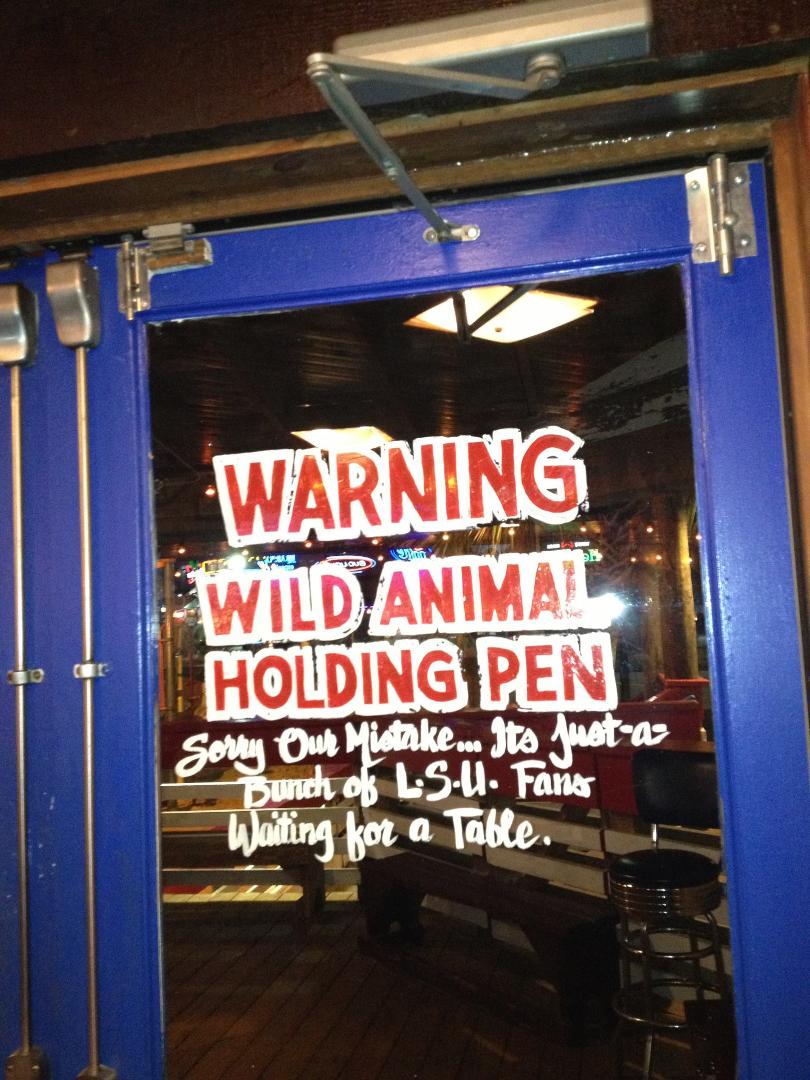 WARNING
WILD ANIMAL
HOLDING PEN
Sorry Our Mistake... Its Just-a-
Bunch of L.S.U. Fans
Waiting for a Table.